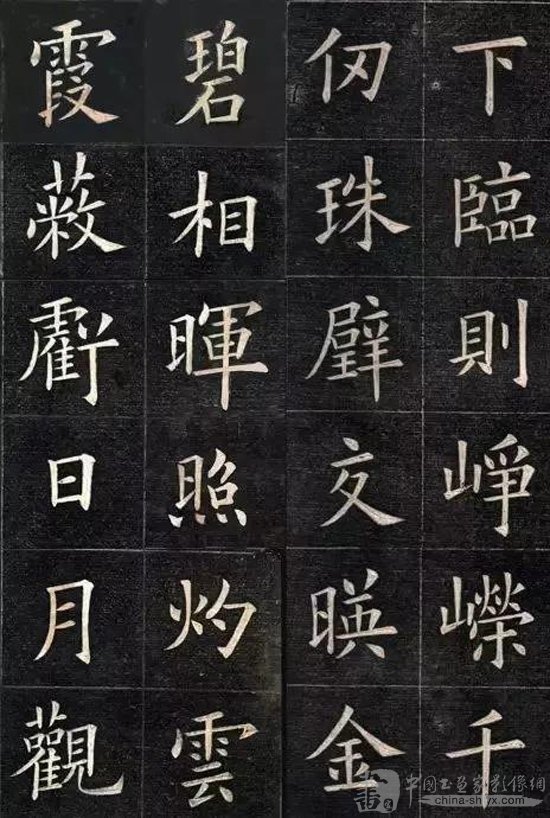 下臨則崢嶸千
仞珠璧交暎金
碧相暉照灼雲
霞蔽虧日月觀
china-shyx.com